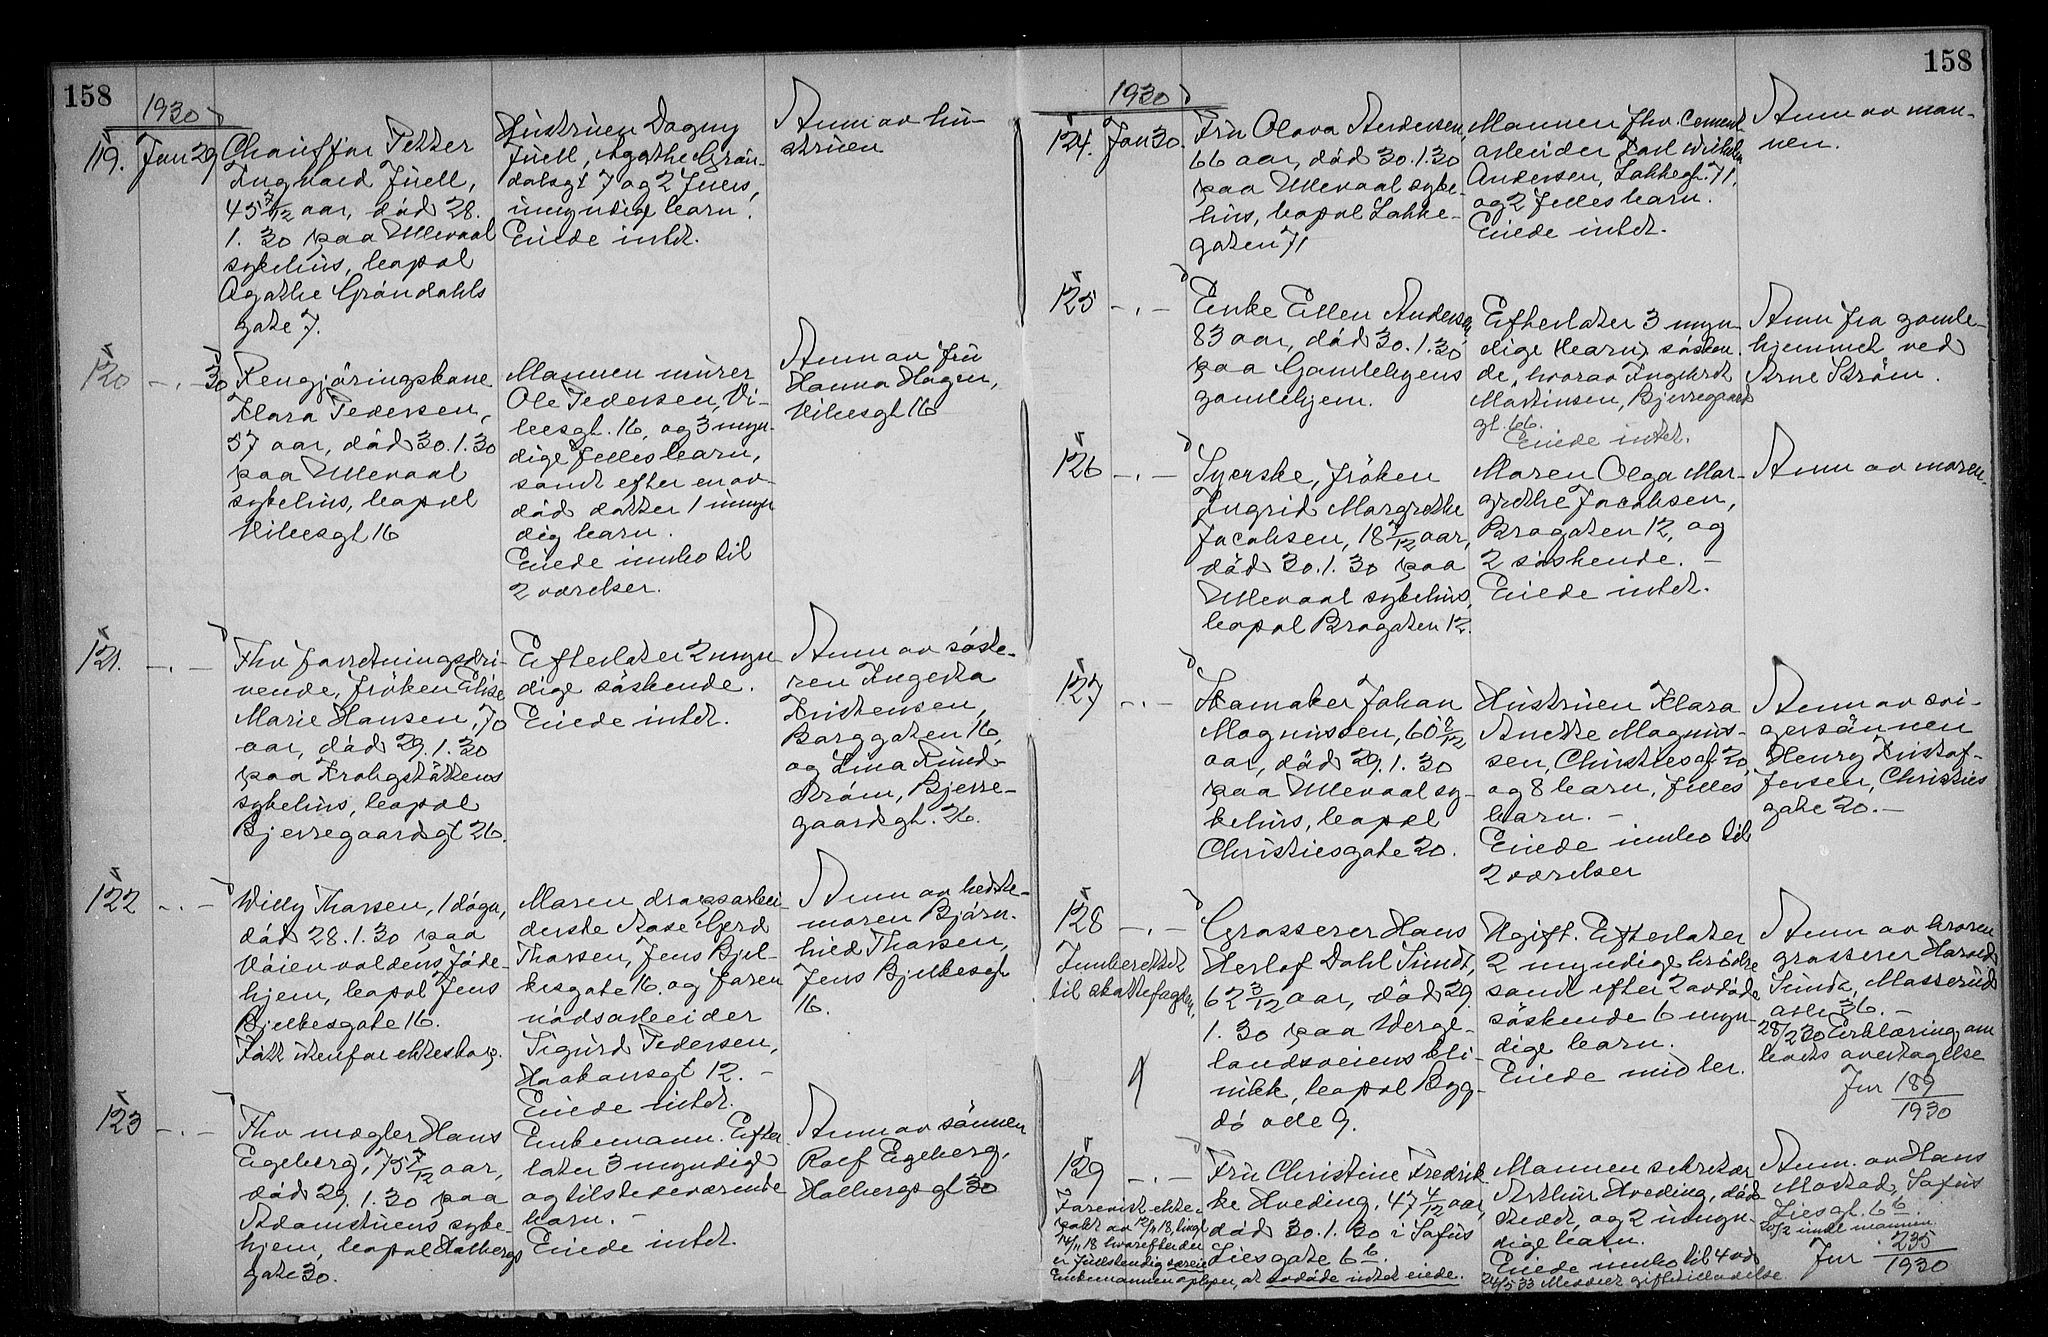 158
1930
119. Jan 29
Chauffør Petter
Ingvard Juell,
45 7/12 aar, død 28.
1. 30 paa Ullevaal
sykehus, bopæl
Agathe Grøndahls
gate 7.
Hustruen Dagny
Juell, Agathe Grøn-
dalsgt 7 og 2 
umyndige barn.
Eiede intet.
Anm av hu-
struen
120 -.- 30
Rengjøringskone
Klara Pedersen,
57 aar, død 30.1.30
paa Ullevaal
sykehus, bopæl
Vibesgt 16
Mannen murer
Ole Pedersen, Vi-
besgt. 16, og 3 myn-
dige fellesbarn,
samt efter en av-
død datter 1 umyn
dig barn.
Eiede innbo til
2 værelser.
Anm av fru
Hanna Hagen,
Vibesgt 16
121. -.-
Fhv forretningsdri-
vende, frøken Elise
Marie Hansen, 70
aar, død 29.1.30
paa Krohgstøttens
sykehus, bopæl
Bjerregaardsgt 26.
Efterlater 2 myn
dige søskende.
Eiede intet.
Anm av søste-
ren Ingerta
Kristensen,
Borggaten 16,
og Lina Rund-
strøm, Bjerre-
gaardsgt. 26.
122 -.-
Willy Thorsen, 1 døgn,
død 28.1.30 paa
Vøienvoldensføde-
hjem, bopæl Jens
Bjelkesgate 16.
Født utenfor ekteskap.
Moren dropsarbei
derske Aase Gerd
Thorsen, Jens Bjel-
kesgate 16. og faren
nødsarbeider
Sigurd Pedersen,
Haakonsgt 12. -
Eiede intet.
Anm av beste-
moren Bjørn-
hild Thorsen,
Jens Bjelkesgt
16.
123 -.-
Fhv mægler Hans
Egeberg, 75 7/12 aar,
død 29.1.30 paa
Adamstuens syke-
hjem, bopæl Holbergs
gate 30.
Enkemann. Efter
later 3 myndige
og tilstedeværende
barn. -
Eiede intet.
Anm av sønnen
Rolf Egeberg,
Holbergs gt 30
158
1930
124. Jan 30.
Fru Olava Andersen,
66 aar, død 30.1.30
paa Ullevaal syke-
hus, bopæl Lakke-
gaten 71
Mannen fhv. cement-
arbeider Karl Wilhelm
Andersen, Lakkegt. 71,
og 2 felles barn.
Eiede intet.
Anm av man-
nen.
125 -.-
Enke Ellen Andersen,
83 aar, død 30.1.30
paa Gamlebyens
gamlehjem.
Efterlater 3 myn
dige barn, søsken
de, hvorav Ingebret
Martinsen, Bjerregaard
gt. 66.
Eiede intet.
Anm fra gamle-
hjemmet ved
Arne Strøm.
126 -.-
Syerske, frøken
Ingrid Margrethe
Jacobsen, 18 /12 aar,
død 30.1.30 paa
Ullevaal sykehus,
bopæl Brogaten 12.
Moren Olga Mar-
grethe Jacobsen,
Brogaten 12, og
2 søskende. -
Eiede intet.
Anm av moren.
127 -.-
Skomaker Johan
Magnussen, 60 /12
aar, død 29.1.30
paa Ullevaal sy-
kehus, bopæl
Christiesgate 20.
Hustruen Klara
Anette Magnus-
sen, Christiesgt 20,
og 8 barn, felles
barn. -
Eiede innbo til
2 værelser
Anm av svi-
gersønnen
Henry Kristof-
fersen, Christies
gate 20. -
128 -.-
Innberettet
til skattefogden,
Grosserer Hans
Herlof Dahl Sundt,
62 3/12 aar, død 29.
1. 30 paa Werge-
landsveiens kli-
nikk, bopæl Byg-
dø alle 9.
Ugift. Efterlater
2 myndige brødre
samt efter 2 avdøde
søskende 6 myn-
dige barn.
Eiede midler.
Anm av broren
grosserer Harald
Sundt, Monserud
alle 36. -
28/2 30 Erklæring om
boets overtagelse
Jnr 189
1930
129 -.-
Forevist ekte-
pakt av 12/11 18, tingl
14/11 18 hvorefter der
er fullstendig særeie
Enkemannen oplyser, at avdøde intet eiede.
Fru Christine Fredrik-
ke Hveding, 47 4/12 aar,
død 30.1.30 i Sofus
Liesgate 6 b.
Mannen sekretær
Arthur Hveding, døds-
stedet, og 2 umyn-
dige barn.
Eiede innbo til 4 vær
24/5 33 Meddelt giftetilladelse
Anm. av Hans
Mostad, Sofus
Liesgt. 6 b.
20/2 inntl mannen
Jnr 235
1930